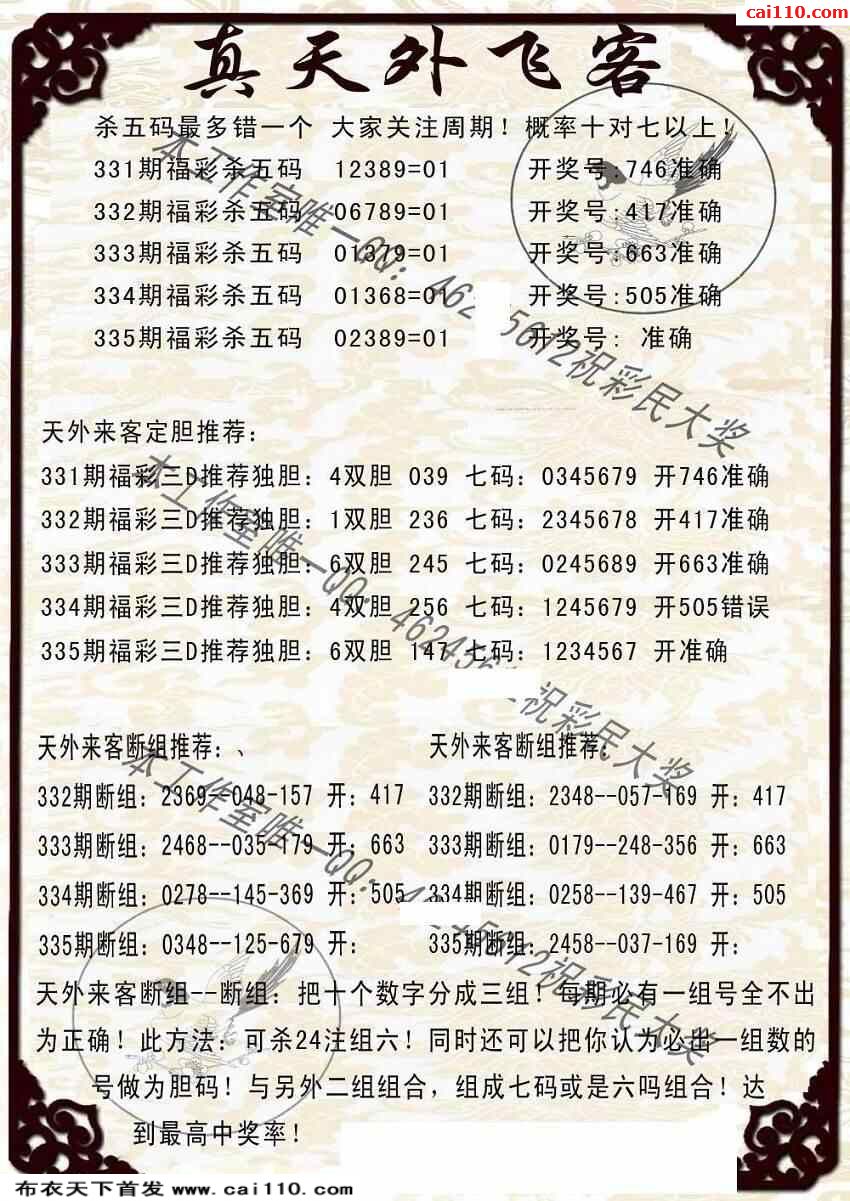 cai110.com
真天外飞客
杀五码最多错一个 大家关注周期！概率十对七以上！
331期福彩杀五码 12389=01 开奖号:746准确
332期福彩杀五码 06789=01 开奖号:417准确
333期福彩杀五码 01379=01 开奖号:663准确
334期福彩杀五码 01368=01 开奖号:505准确
335期福彩杀五码 02389=01 开奖号: 准确
天外来客定胆推荐：
331期福彩三D推荐独胆：4双胆 039 七码：0345679 开746准确
332期福彩三D推荐独胆：1双胆 236 七码：2345678 开417准确
333期福彩三D推荐独胆：6双胆 245 七码：0245689 开663准确
334期福彩三D推荐独胆：4双胆 256 七码：1245679 开505错误
335期福彩三D推荐独胆：6双胆 147 七码：1234567 开准确
天外来客断组推荐：、 天外来客断组推荐：
332期断组：2369--048-157 开：417 332期断组：2348--057-169 开：417
333期断组：2468--035-179 开：663 333期断组：0179--248-356 开：663
334期断组：0278--145-369 开：505 334期断组：0258--139-467 开：505
335期断组：0348--125-679 开： 335期断组：2458--037-169 开：
天外来客断组--断组：把十个数字分成三组！每期必有一组号全不出
为正确！此方法：可杀24注组六！同时还可以把你认为必出一组数的
号做为胆码！与另外二组组合，组成七码或是六吗组合！达
到最高中奖率！
本工作室唯一QQ：462 5612祝彩民大奖
本工作室唯一QQ：462456 祝彩民大奖
本工作室唯一QQ： 45612祝彩民大奖
布衣天下首发 www.cai110.com